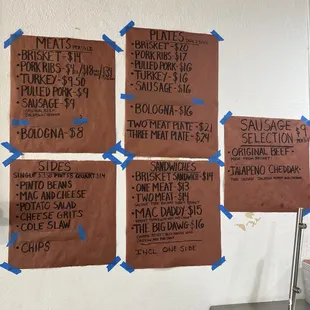 MEATS
BRISKET - $14
PORK RIBS
TURKEY - $9.50
PULLED PORK - $9
SAUSAGE - $9
BOLOGNA - $8
PLATES
BRISKET - $20
PORK RIBS $17
PULLED PORK - $16
TURKEY - $16
SAUSAGE $16
BOLOGNA - $16
TWO MEAT PLATE - $21
THREE MEAT PLATE - $24
SAUSAGE $9
SELECTION
ORIGINAL BEEF -
JALAPENO CHEDDAR -
SIDES
PINTO BEANS
MAC AND CHEESE
POTATO SALAD
CHEESE GRITS
COLE SLAW
CHIPS
SANDWICHES
BRISKET SANDWICH - $14
ONE MEAT $13
TWO MEAT
MAC DADDY $15
THE BIG DAWG $16
INCL. ONE SIDE